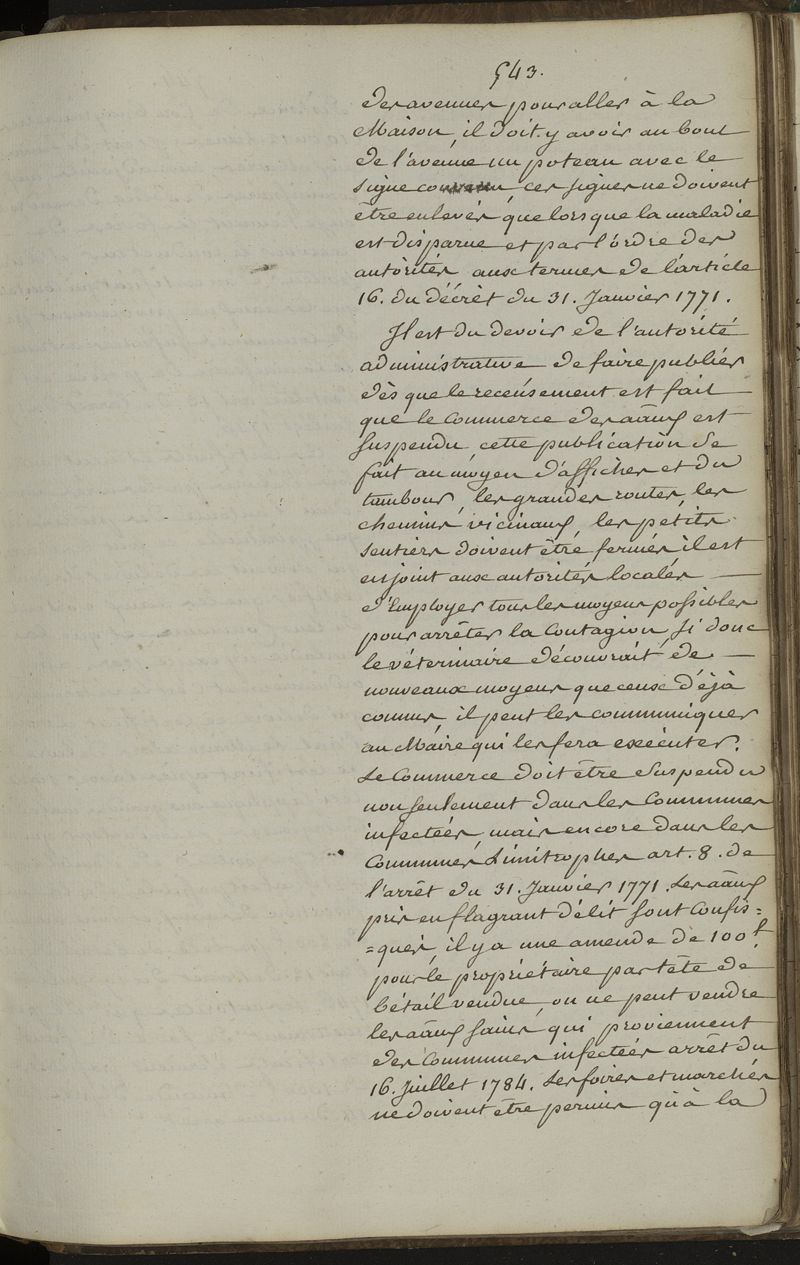 543.
des avenues pour aller à la
Maison, il doit y avoir au bout
de l'avenue un poteau avec le
signe convenu ces signes ne doivent
être enlevés que lorsque la maladie
est disparue et par l'ordre des
autorités aux termes de l'article
16. du décrèt du 31. Janvier 1771.
Il est du devoir de l'autorité
administrative de faire publier
dès que le recensement est fait
que le Commerce des aãux est
suspendu cette publication se
fait au moyen d'affiches et du
tambour, les grandes routes, les
chemins vicinaux, les petits
sentiers doivent être fermés il est
enjoint aux autorités locales —
d'Employer tous les moyens possibles
pour arrêter la Contagion, si donc
le véterinaire découvrait de —
nouveaux moyens que ceux déjà
connus, il peut les communiquer
au Maire qui les fera exécuter.
Le Commerce doit être suspendu
non seulement dans les Communes
infectées, mais encore dans les
Communes Limitrophes art. 8. de
l'arrêt du 31. Janvier 1771. Les aãux
pris en flagrant délit sont Confis=
=qués, il y a une amende de 100 f.
pour le propriétaire par tête de
bétail vendue, on ne peut vendre
les aãux sains qui proviennent
des Communes infectées arrêt du
16. Juillet 1784. Les foires et marchés
ne doivent être permis qu'à la